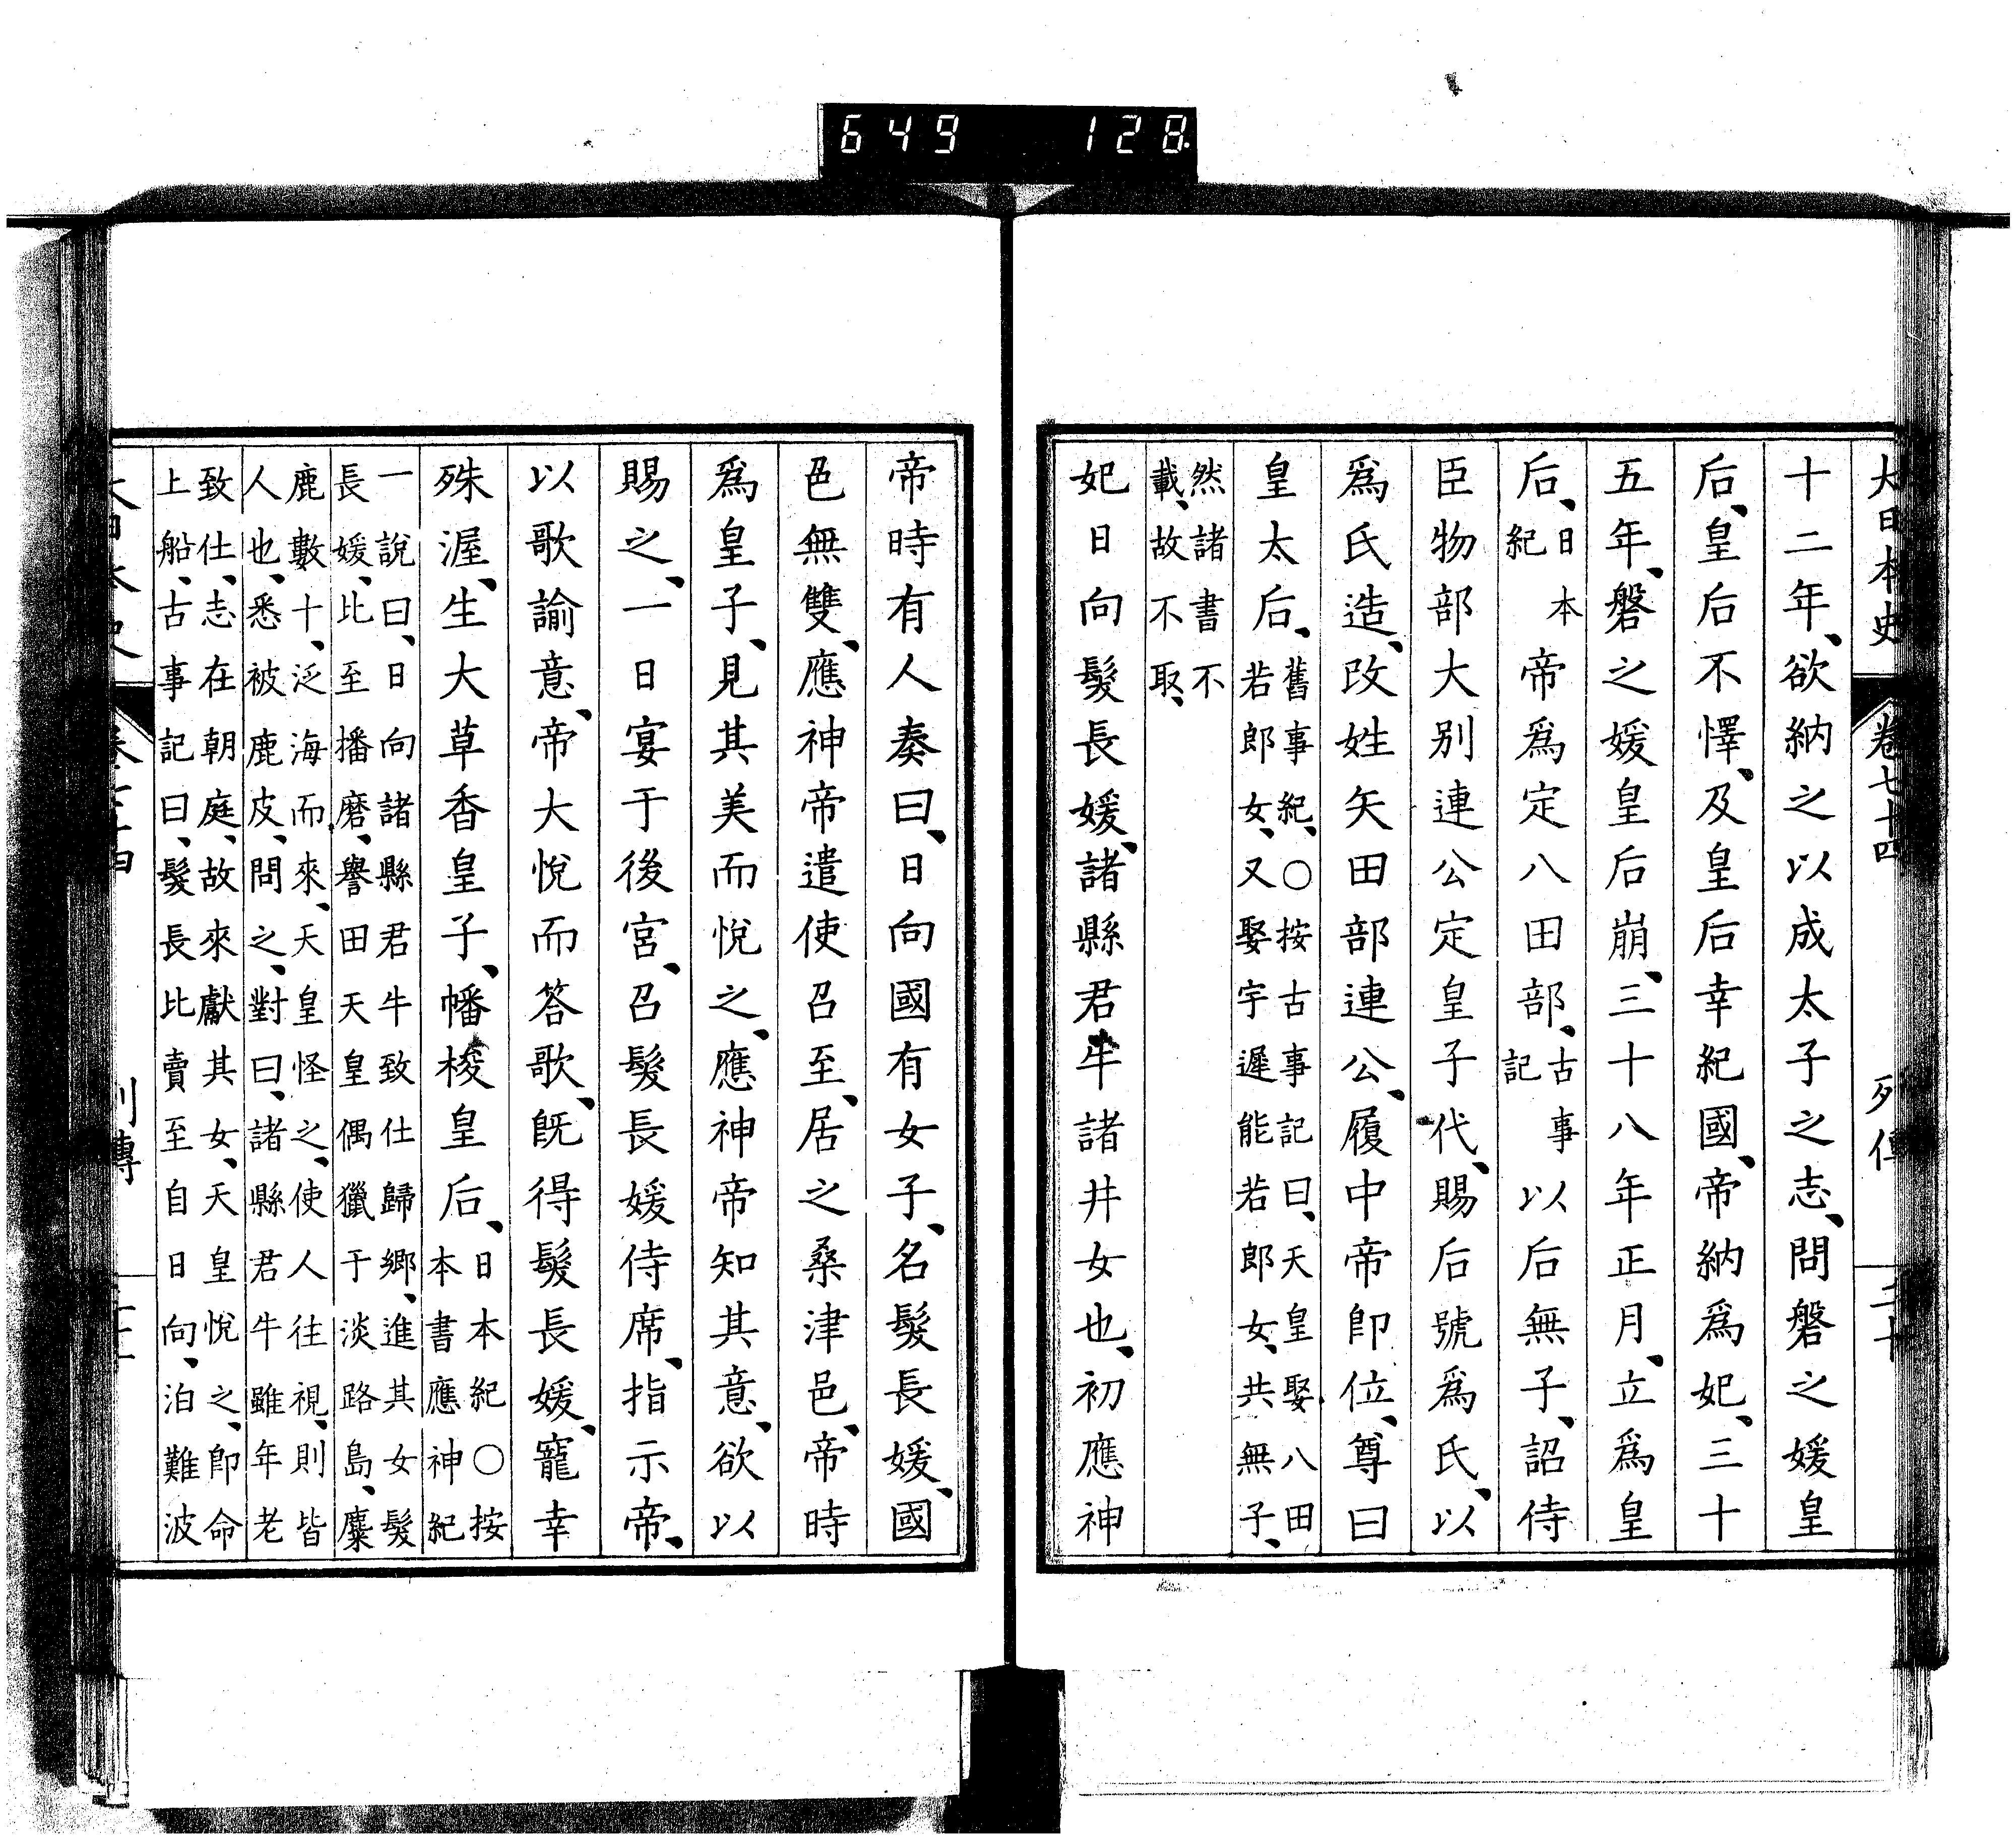 649 128
大日本史 卷七十四 列傳
十二年、欲納之以成太子之志、問磐之媛皇
后、皇后不懌、及皇后幸紀國、帝納爲妃、三十
五年、磐之媛皇后崩、三十八年正月、立爲皇
后、日本紀 帝爲定八田部、古事記 以后無子、詔侍
臣物部大別連公定皇子代、賜后號爲氏、以
爲氏造、改姓矢田部連公、履中帝卽位、尊曰
皇太后、舊事紀、○按古事記曰、天皇娶八田
若郎女、又娶宇遲能若郎女、共無子、
然諸書不
載、故不取、
妃日向髮長媛、諸縣君牛諸井女也、初應神
帝時有人奏曰、日向國有女子、名髮長媛、國
色無雙、應神帝遣使召至、居之桑津邑、帝時
爲皇子、見其美而悅之、應神帝知其意、欲以
賜之、一日宴于後宮、召髮長媛侍席、指示帝、
以歌諭意、帝大悅而答歌、旣得髮長媛、寵幸
殊渥、生大草香皇子、幡梭皇后、日本紀○按
本書應神紀
一說曰、日向諸縣君牛致仕歸鄉、進其女髮
長媛、比至播磨、譽田天皇偶獵于淡路島、麋
鹿數十、泛海而來、天皇怪之、使人往視、則皆
人也、悉被鹿皮、問之、對曰、諸縣君牛雖年老
致仕、志在朝庭、故來獻其女、天皇悅之、卽命
上船、古事記曰、髮長比賣至自日向、泊難波